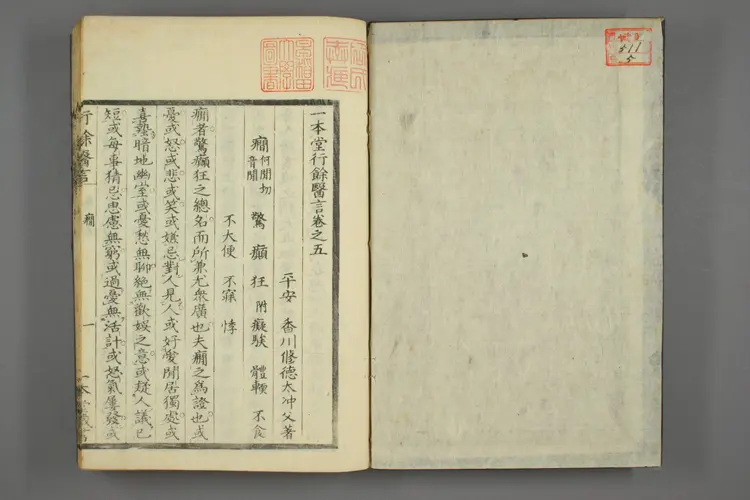 一本堂行餘醫言卷之五
平安 香川修德太冲父著
癇 何間切 音閒 驚 癲 狂 附 癡騃 體軟 不食
不大便 不寐 悸
癇者驚癲狂之總名而所兼尤衆廣也夫癇之爲證也或
憂或怒或悲或笑或嫌忌對人見人或好愛閒居獨處或
喜墊暗地幽室或憂愁無聊絶無歡娛之意或疑人議己
短或每事猜忌思慮無窮或過憂無活計或怒氣屢發或
行餘醫言
癇
一
511
5